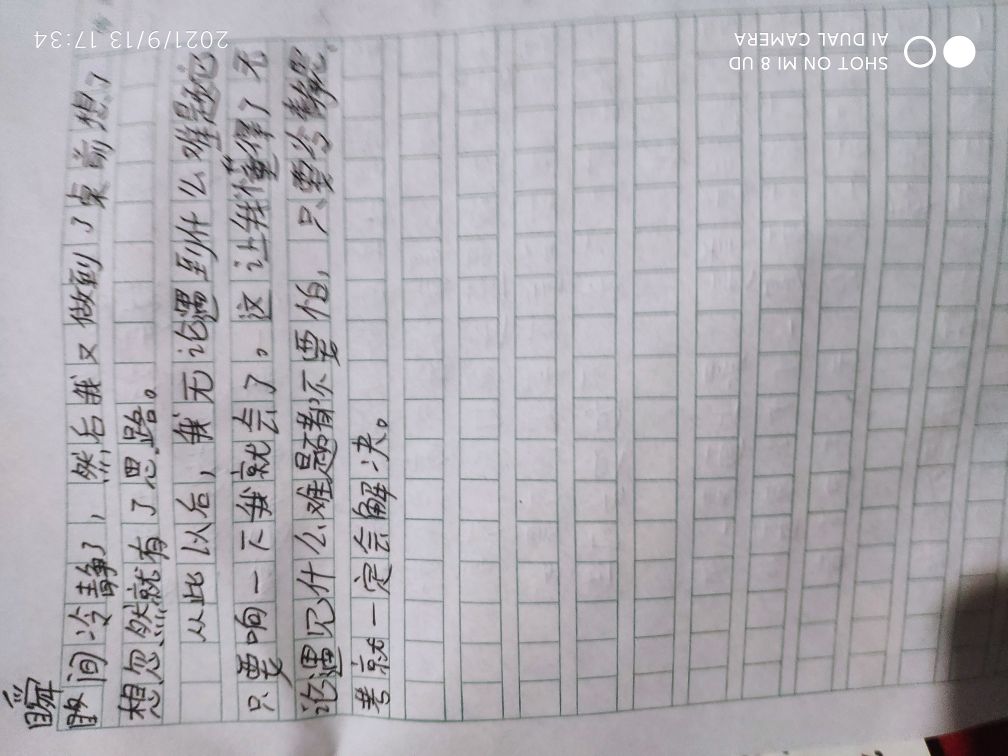 瞬
瞬间冷静了,然后我又做到了桌前想了
想忽然就有了思路。
从此以后,我无论遇到什么难题它
只要响一下我就会了。这让我懂得了无
论遇见什么难题都不要怕,只要冷静
考就一定会解决。
SHOT ON MI 8 UD
AI DUAL CAMERA
2021/9/13 17:34